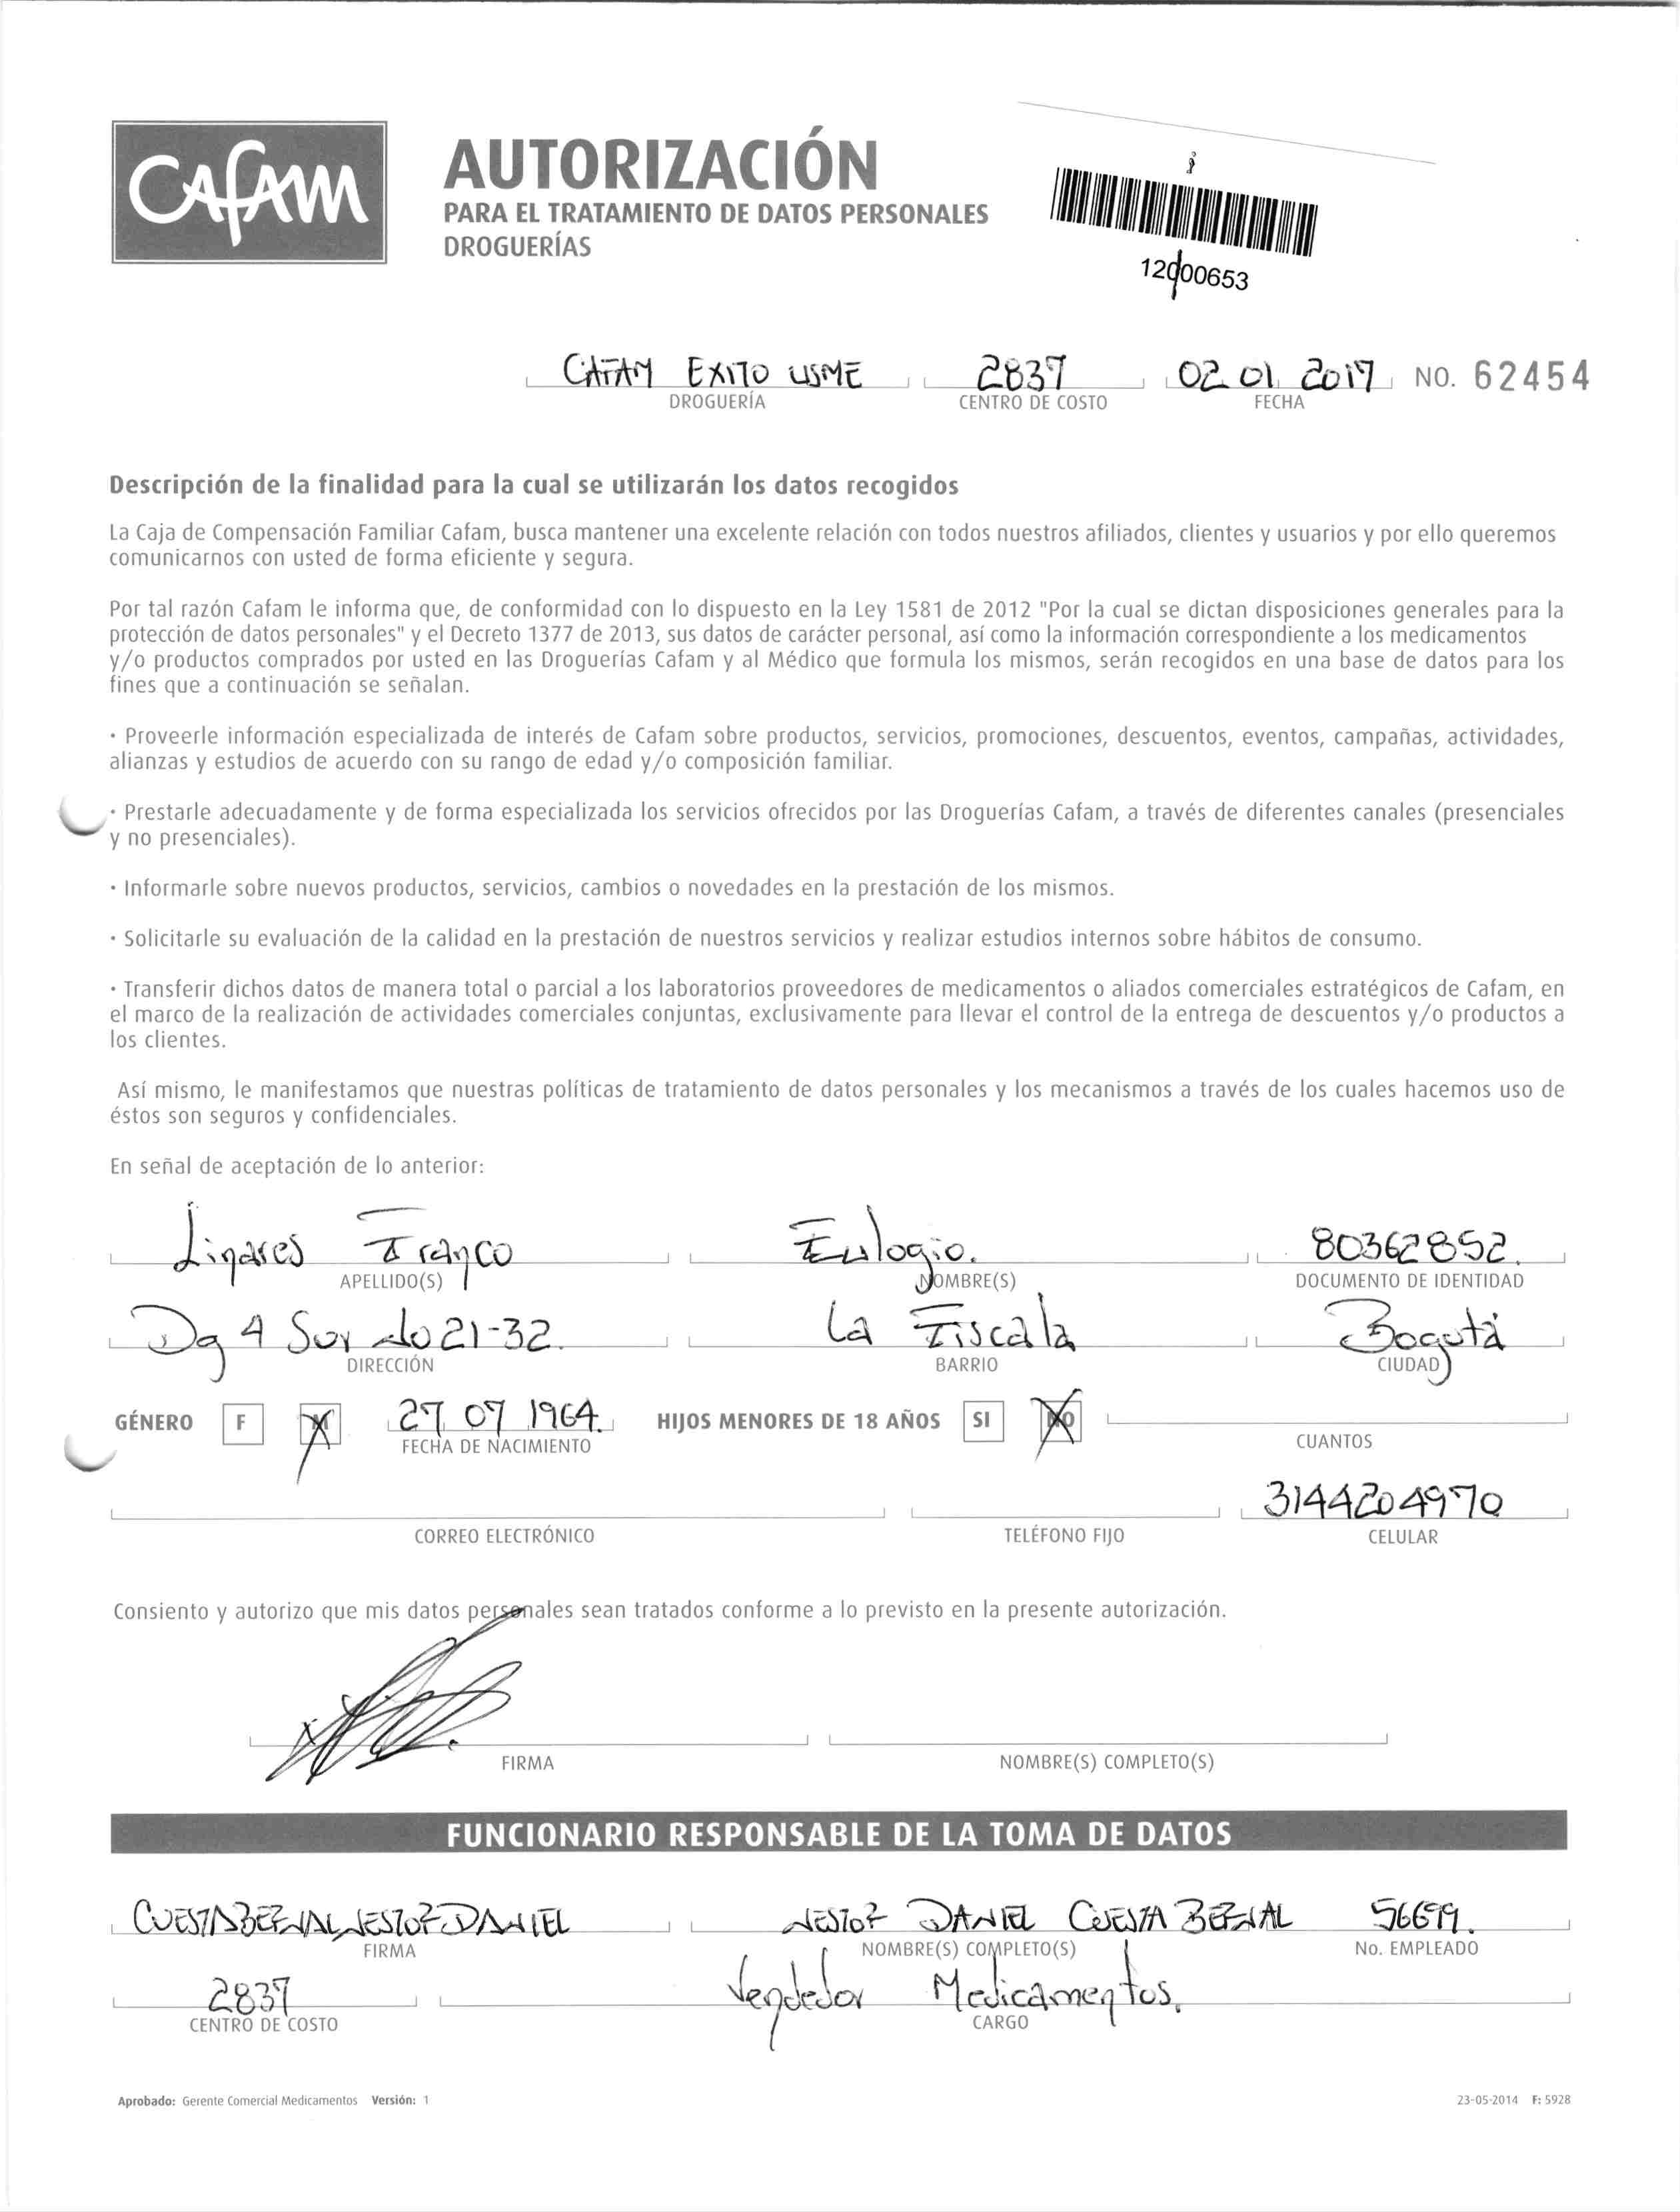 CAFAM
AUTORIZACIÓN
PARA EL TRATAMIENTO DE DATOS PERSONALES
DROGUERÍAS
12000653
CAFAM EXITO USME 2837 02 01 2017 NO. 62454
DROGUERÍA CENTRO DE COSTO FECHA
Descripción de la finalidad para la cual se utilizarán los datos recogidos
La Caja de Compensación Familiar Cafam, busca mantener una excelente relación con todos nuestros afiliados, clientes y usuarios y por ello queremos
comunicarnos con usted de forma eficiente y segura.
Por tal razón Cafam le informa que, de conformidad con lo dispuesto en la Ley 1581 de 2012 "Por la cual se dictan disposiciones generales para la
protección de datos personales" y el Decreto 1377 de 2013, sus datos de carácter personal, así como la información correspondiente a los medicamentos
y/o productos comprados por usted en las Droguerías Cafam y al Médico que formula los mismos, serán recogidos en una base de datos para los
fines que a continuación se señalan.
· Proveerle información especializada de interés de Cafam sobre productos, servicios, promociones, descuentos, eventos, campañas, actividades,
alianzas y estudios de acuerdo con su rango de edad y/o composición familiar.
· Prestarle adecuadamente y de forma especializada los servicios ofrecidos por las Droguerías Cafam, a través de diferentes canales (presenciales
y no presenciales).
· Informarle sobre nuevos productos, servicios, cambios o novedades en la prestación de los mismos.
· Solicitarle su evaluación de la calidad en la prestación de nuestros servicios y realizar estudios internos sobre hábitos de consumo.
· Transferir dichos datos de manera total o parcial a los laboratorios proveedores de medicamentos o aliados comerciales estratégicos de Cafam, en
el marco de la realización de actividades comerciales conjuntas, exclusivamente para llevar el control de la entrega de descuentos y/o productos a
los clientes.
Así mismo, le manifestamos que nuestras políticas de tratamiento de datos personales y los mecanismos a través de los cuales hacemos uso de
éstos son seguros y confidenciales.
En señal de aceptación de lo anterior:
Linares Franco Eulogio. 80362852.
APELLIDO(S) NOMBRE(S) DOCUMENTO DE IDENTIDAD
Dg 4 Sur No 21-32. La Fiscala Bogotá
DIRECCIÓN BARRIO CIUDAD
GÉNERO F M 27 07 1964. HIJOS MENORES DE 18 AÑOS SI NO
FECHA DE NACIMIENTO CUANTOS
3144204970
CORREO ELECTRÓNICO TELÉFONO FIJO CELULAR
Consiento y autorizo que mis datos personales sean tratados conforme a lo previsto en la presente autorización.
FIRMA NOMBRE(S) COMPLETO(S)
FUNCIONARIO RESPONSABLE DE LA TOMA DE DATOS
CUESTA BERNAL NESTOR DANIEL NESTOR DANIEL CUESTA BERNAL 56699.
FIRMA NOMBRE(S) COMPLETO(S) No. EMPLEADO
2837 Vendedor Medicamentos.
CENTRO DE COSTO CARGO
Aprobado: Gerente Comercial Medicamentos Versión: 1 23-05-2014 F: 5928